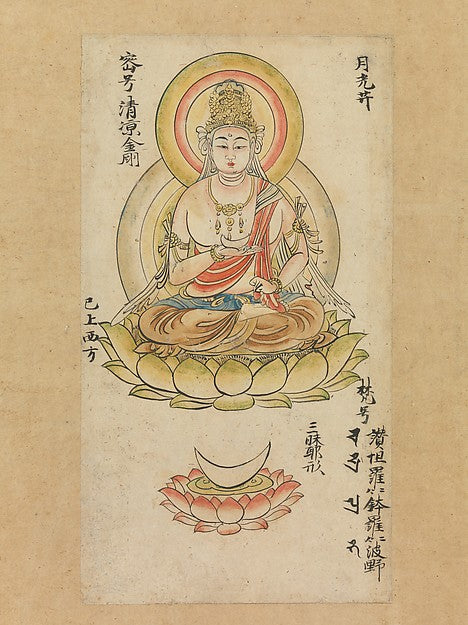 月光𦬇
梵号
讃怛羅二合鉢羅二合波野
三昧耶形
密号 清凉金剛
已上西方